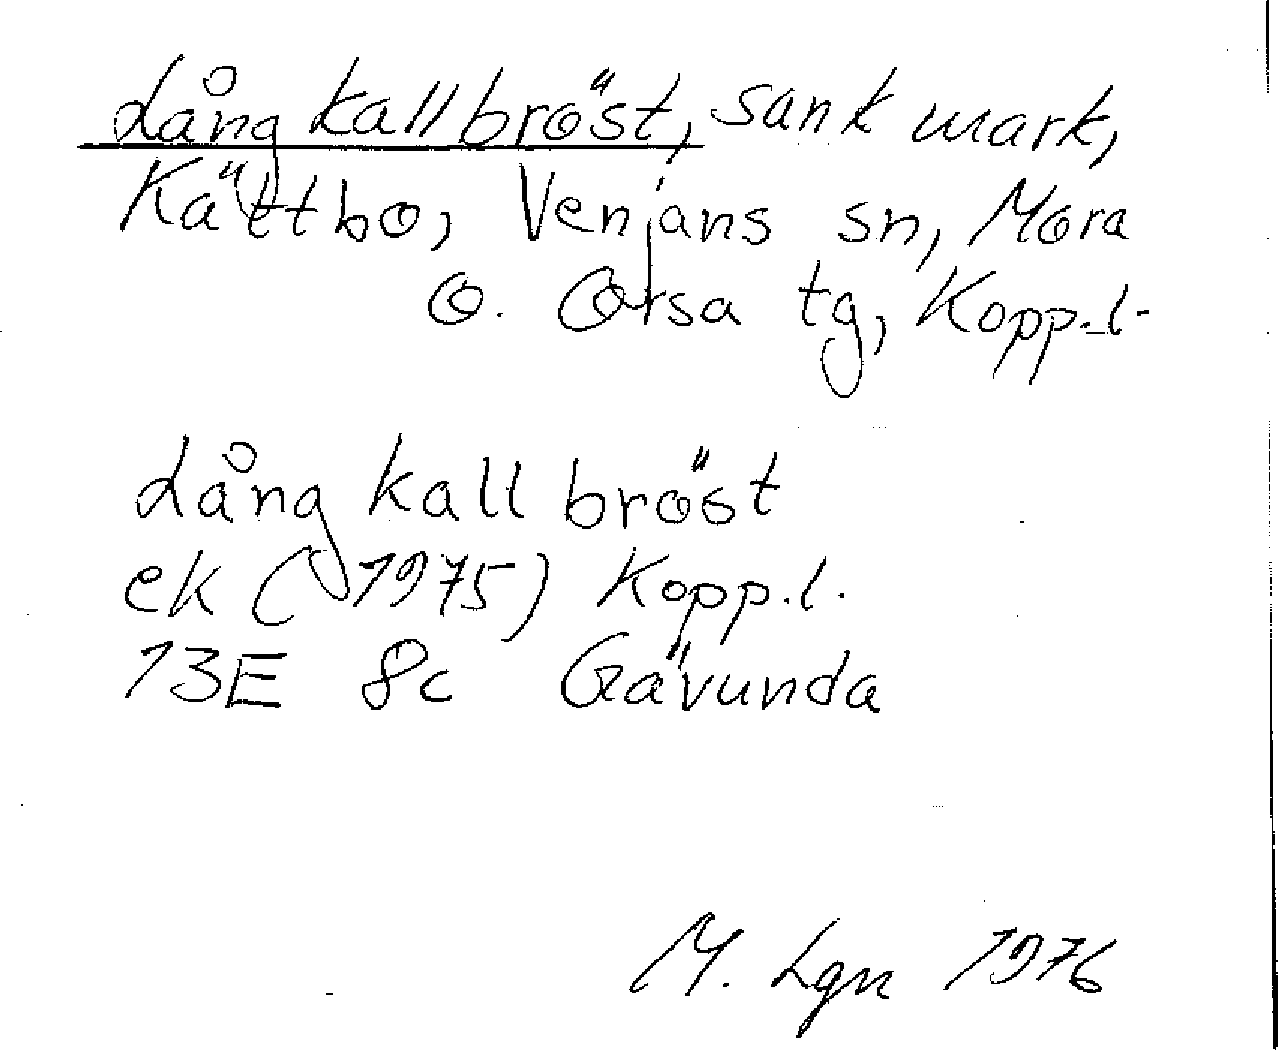 Långkallbröst, sank mark,
Kättbo, Venjans sn, Mora
o. Orsa tg, Kopp.l.
Långkallbröst
ek (1975) Kopp.l.
13E 8c Gävunda
M. Lgn 1976